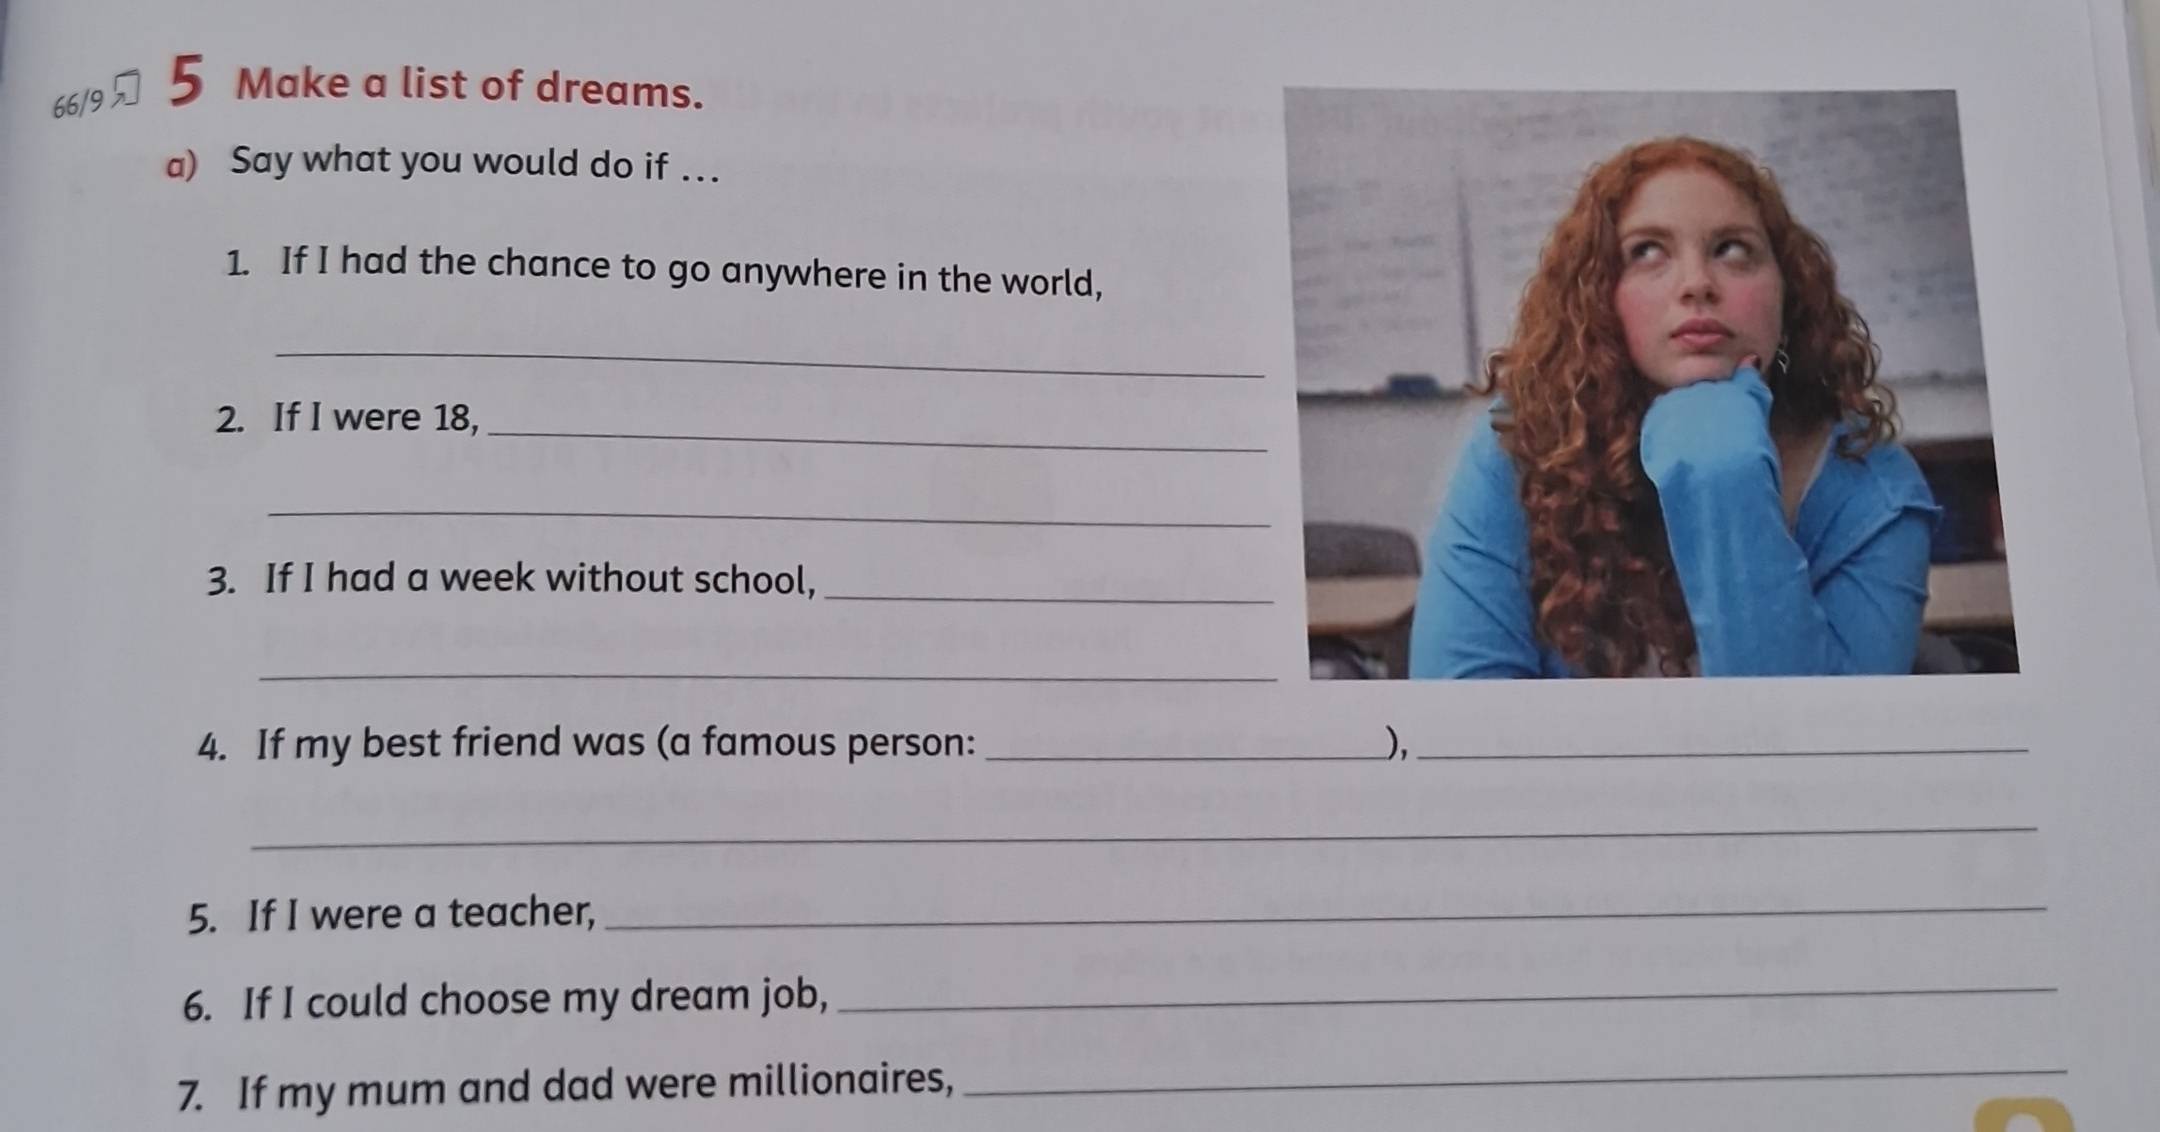 66/9 5 Make a list of dreams.
a) Say what you would do if ...
1. If I had the chance to go anywhere in the world,
2. If I were 18,
3. If I had a week without school,
4. If my best friend was (a famous person: ),
5. If I were a teacher,
6. If I could choose my dream job,
7. If my mum and dad were millionaires,